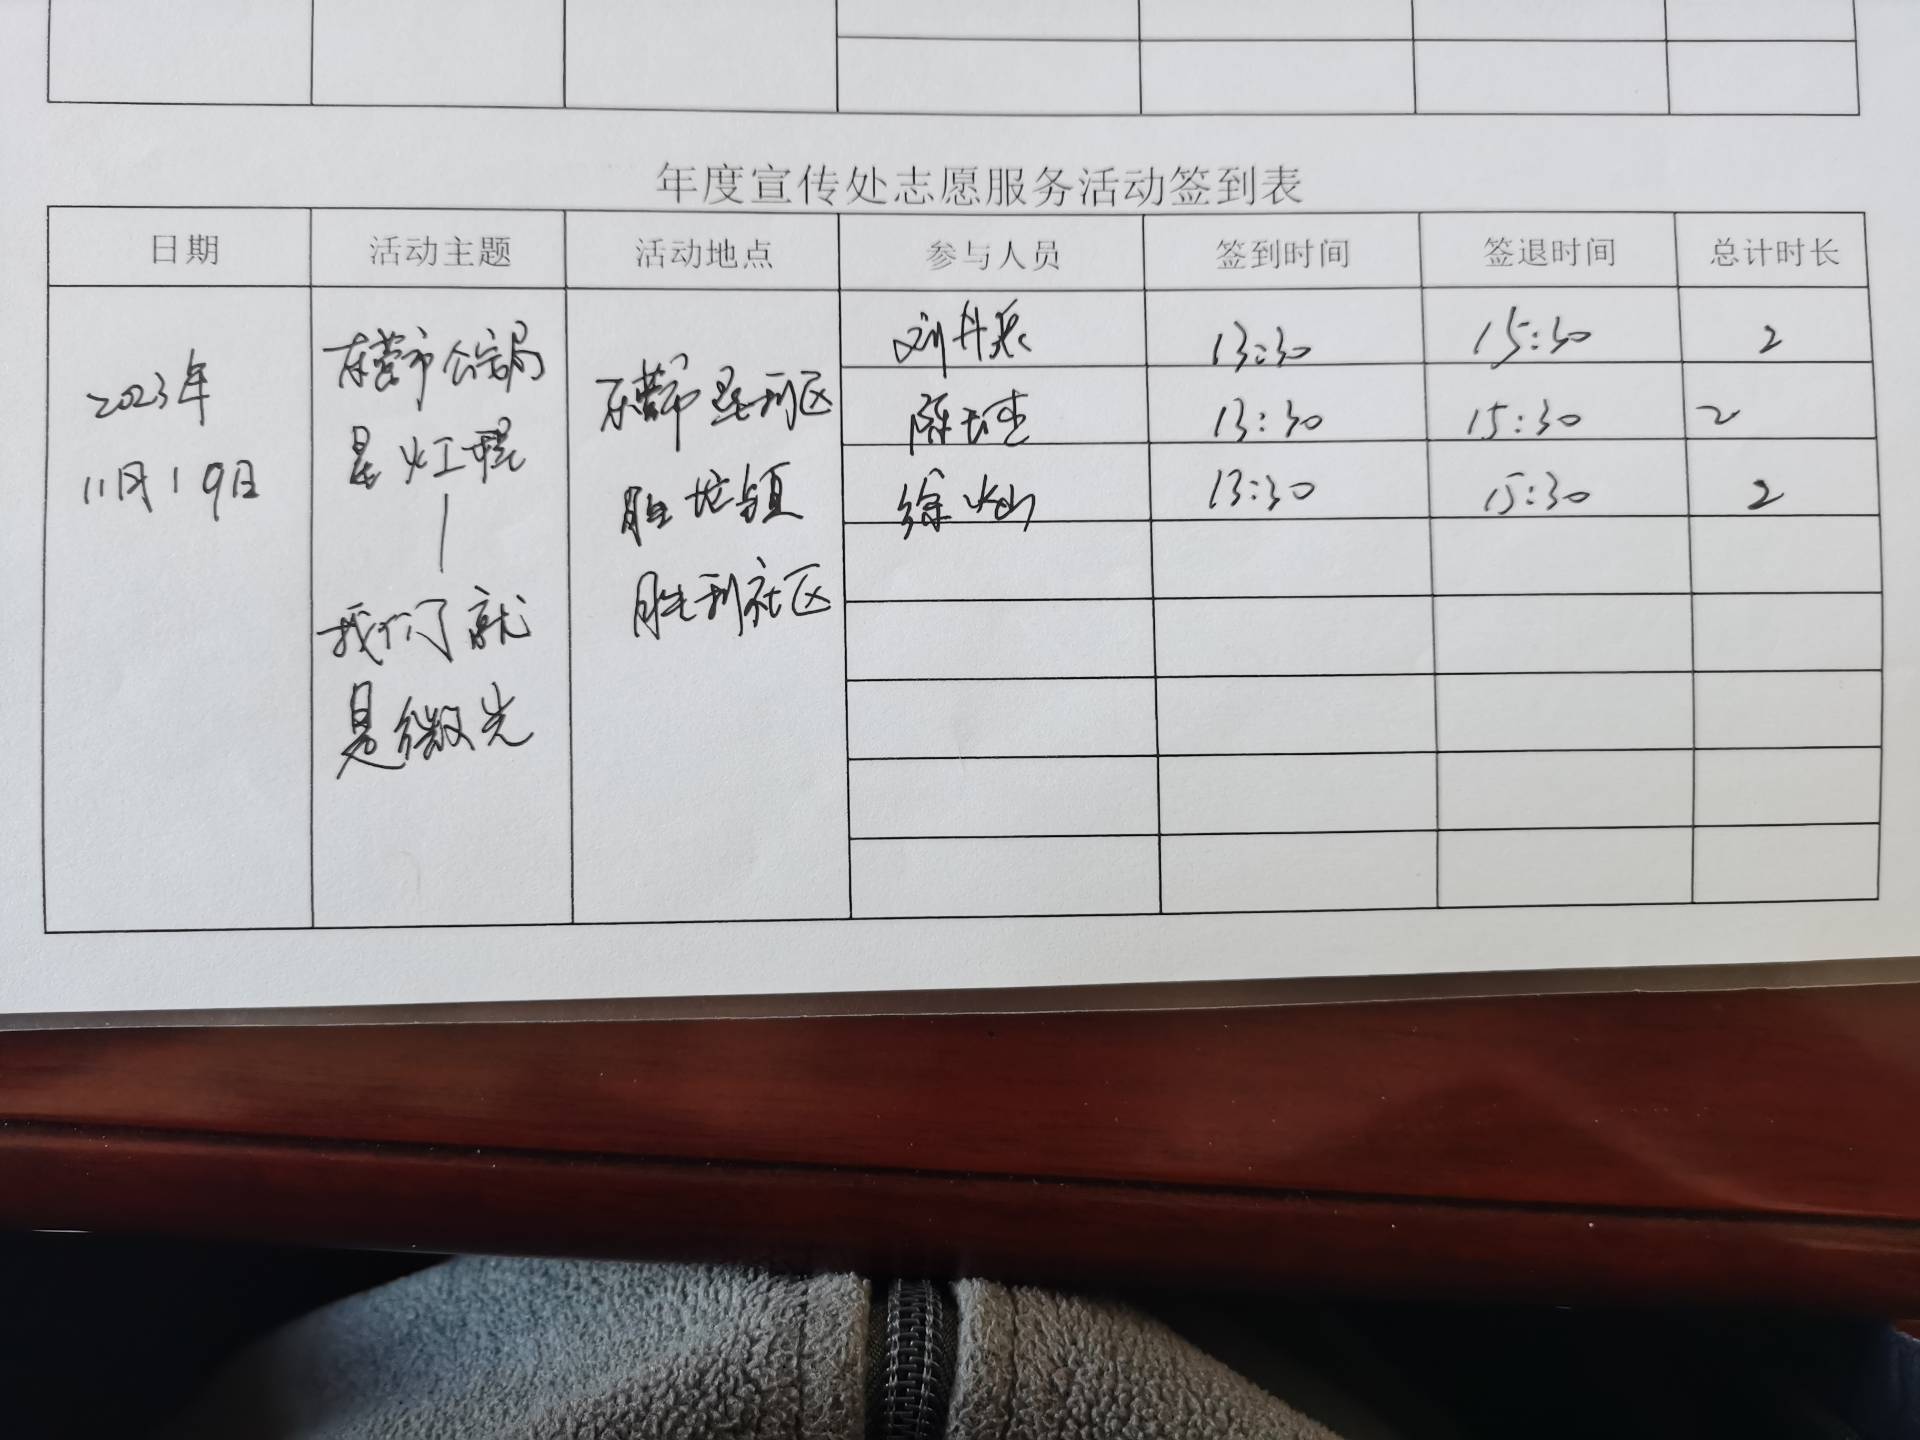 年度宣传处志愿服务活动签到表
日期 活动主题 活动地点 参与人员 签到时间 签退时间 总计时长
2023年
11月19日
东营市公安局
星火工程
—
我们就
是微光
东营市垦利区
胜坨镇
胜利社区
刘丹 13:30 15:30 2
陈 13:30 15:30 2
徐 13:30 15:30 2